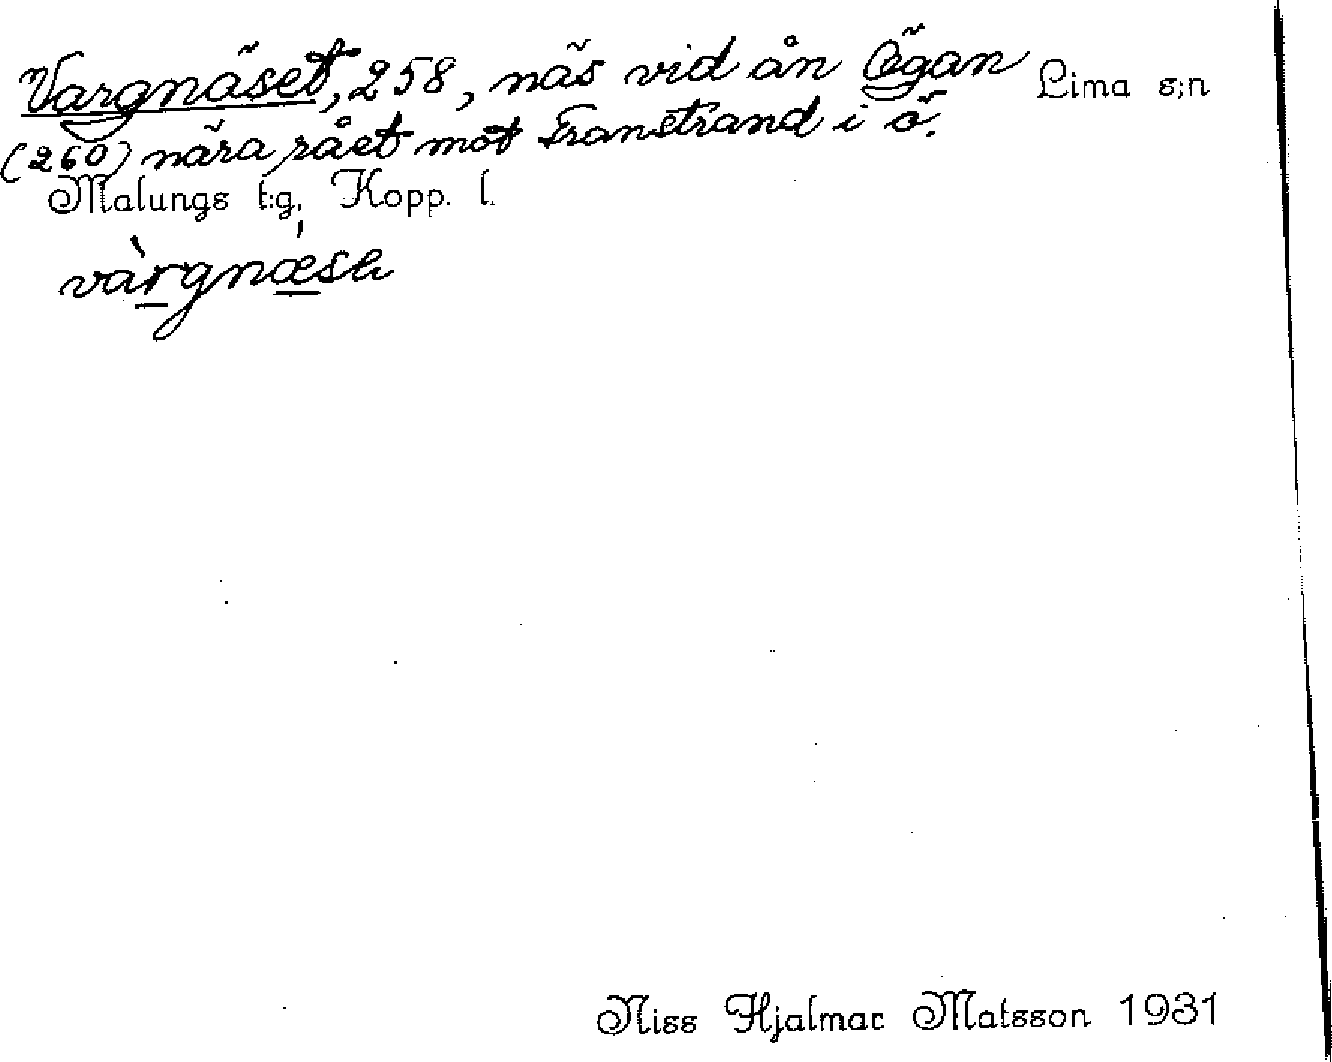 Vargnäset, 258, näs vid ån Ögan Lima s:n
(260) nära rået mot Transtrand i ö.
Malungs t:g, Kopp. l.
vàrgnǽsh
Niss Hjalmar Matsson 1931